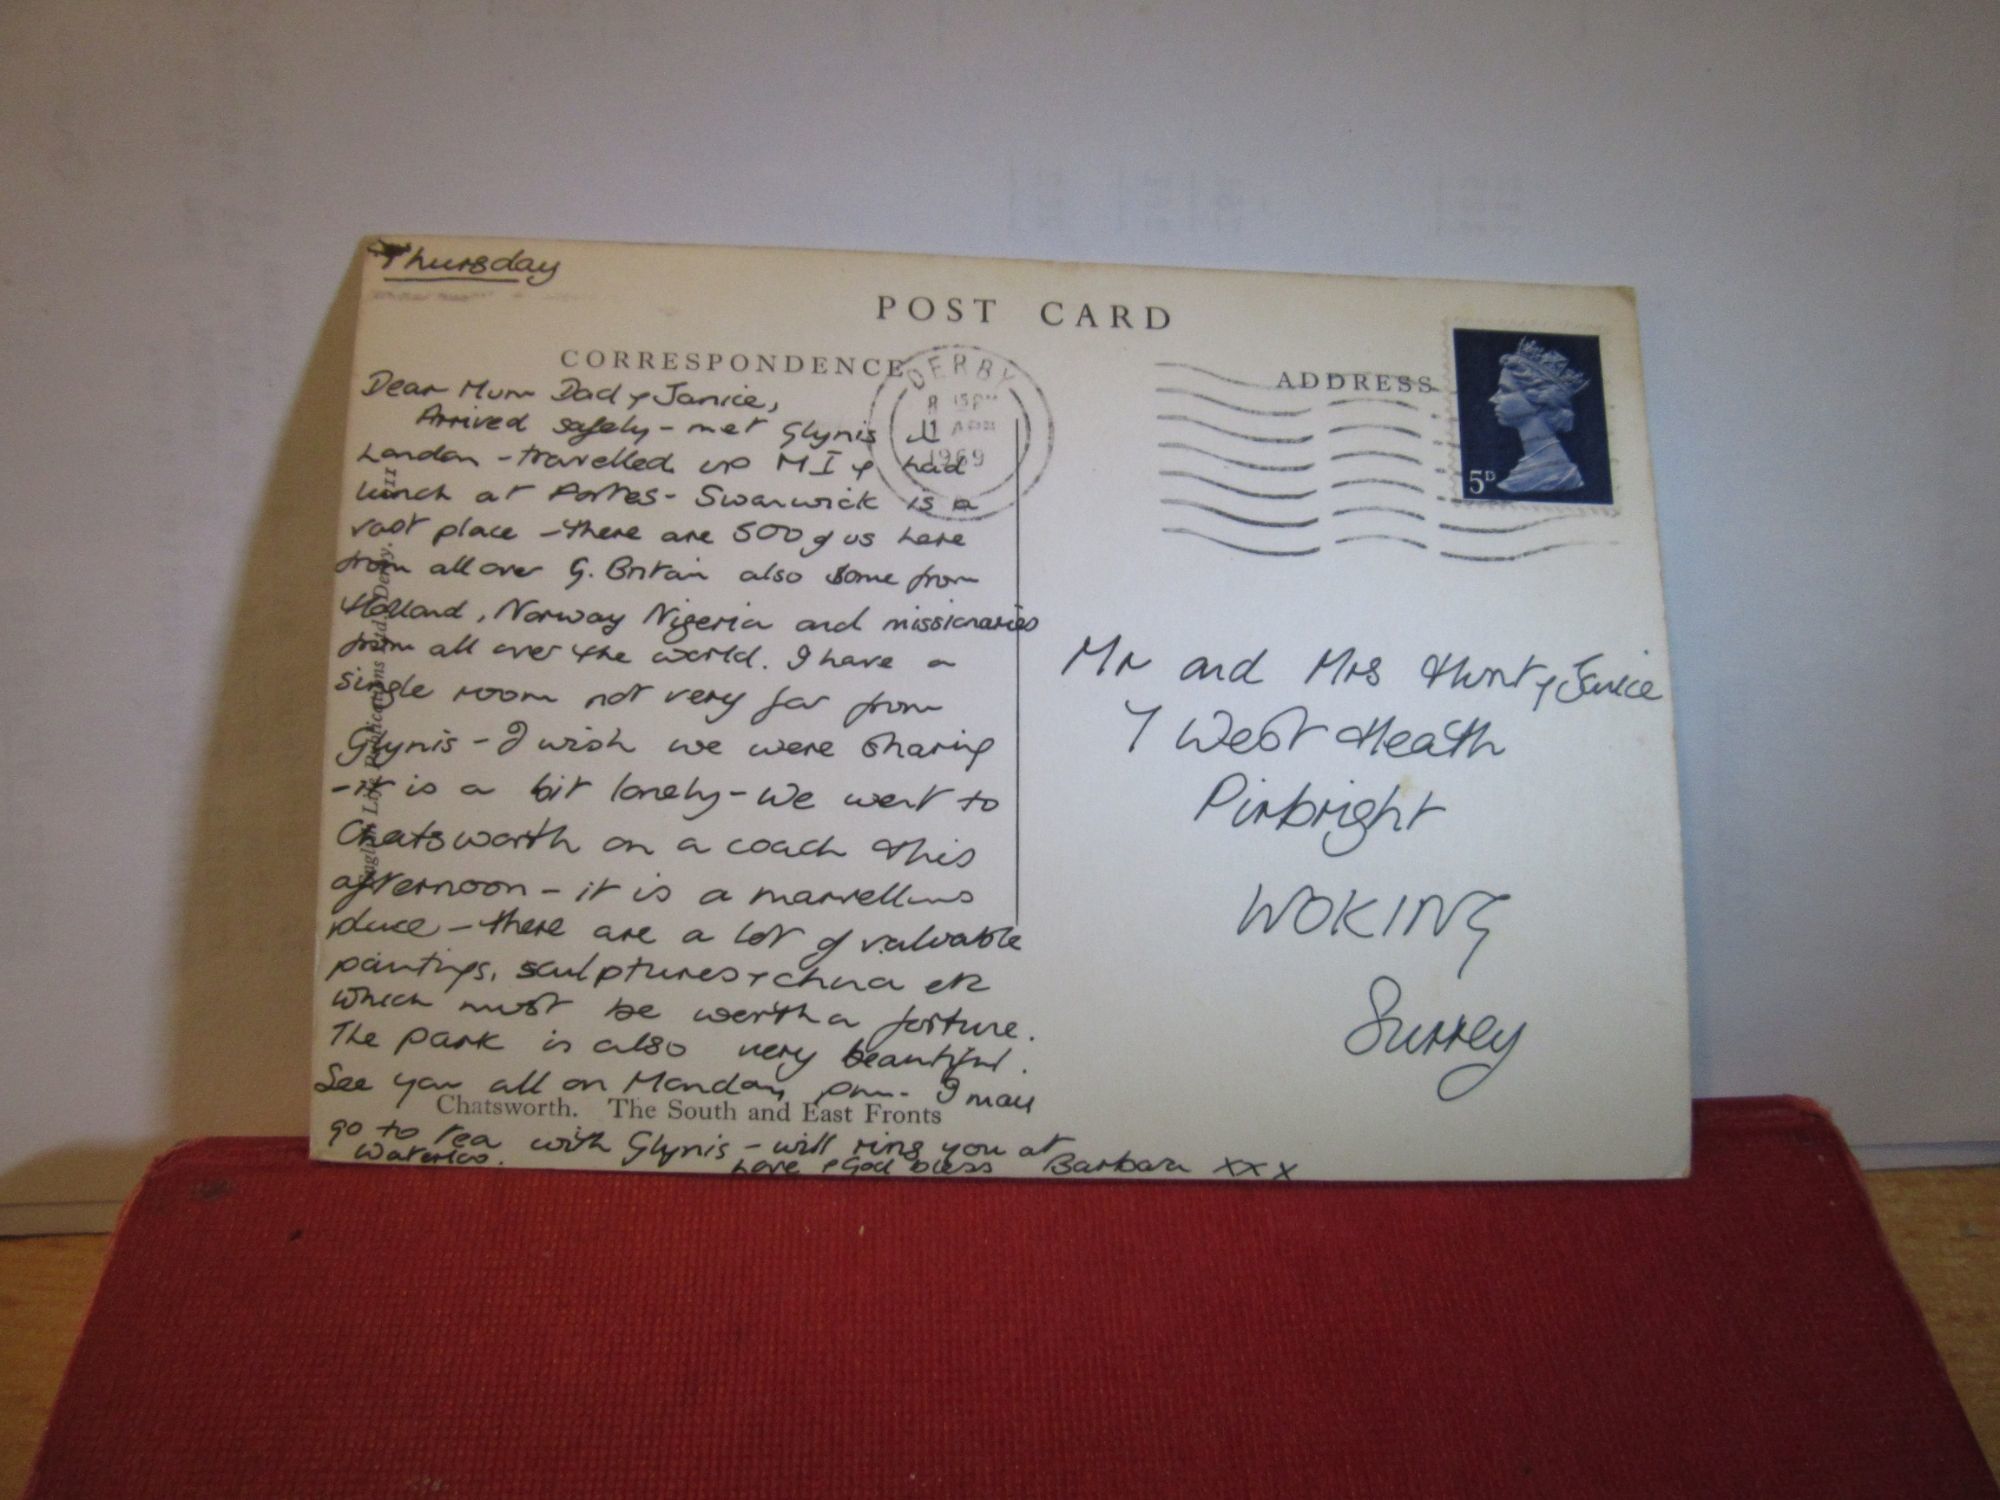 Thursday
POST CARD
CORRESPONDENCE
ADDRESS
DERBY
11 APR
1969
5D
Dear Mum Dad & Janice,
Arrived safely - met Glynis in
London - travelled up M1 & had
lunch at Fortes - Swanwick is a
vast place - there are 500 of us here
from all over G. Britain also some from
Holland, Norway Nigeria and missionaries
from all over the world. I have a
single room not very far from
Glynis - I wish we were sharing
- it is a bit lonely - We went to
Chatsworth on a coach this
afternoon - it is a marvellous
place - there are a lot of valuable
paintings, sculptures & china etc
which must be worth a fortune.
The park is also very beautiful.
See you all on Monday pm. I may
Chatsworth. The South and East Fronts
go to tea with Glynis - will ring you at
Waterloo.
Love & God bless Barbara xxx
English Life Publications Ltd. Derby.
Mr and Mrs Hunt & Janice
7 West Heath
Pirbright
WOKING
Surrey